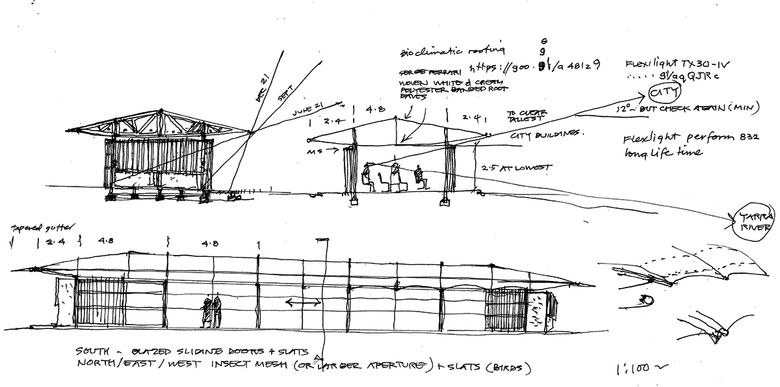 Bioclimatic roofing
SERGE FERRARI https://goo.gl/a48129
WOVEN WHITE & CREAM
POLYESTER BANDED ROOF
EAVES
Flexilight TX30-IV
CITY
12° – BUT CHECK AGAIN (MIN)
Flexlight perform 832
long life time
DEC 21
SEPT
JUNE 21
2.4
4.8
2.4
TO CLEAR
TALLEST
CITY BUILDINGS.
MS
2.5 AT LOWEST
YARRA
RIVER
tapered gutter
2.4
4.8
4.8
SOUTH – GLAZED SLIDING DOORS + SLATS
NORTH/EAST/WEST INSECT MESH (OR LARGER APERTURE) + SLATS (BIRDS)
1:100